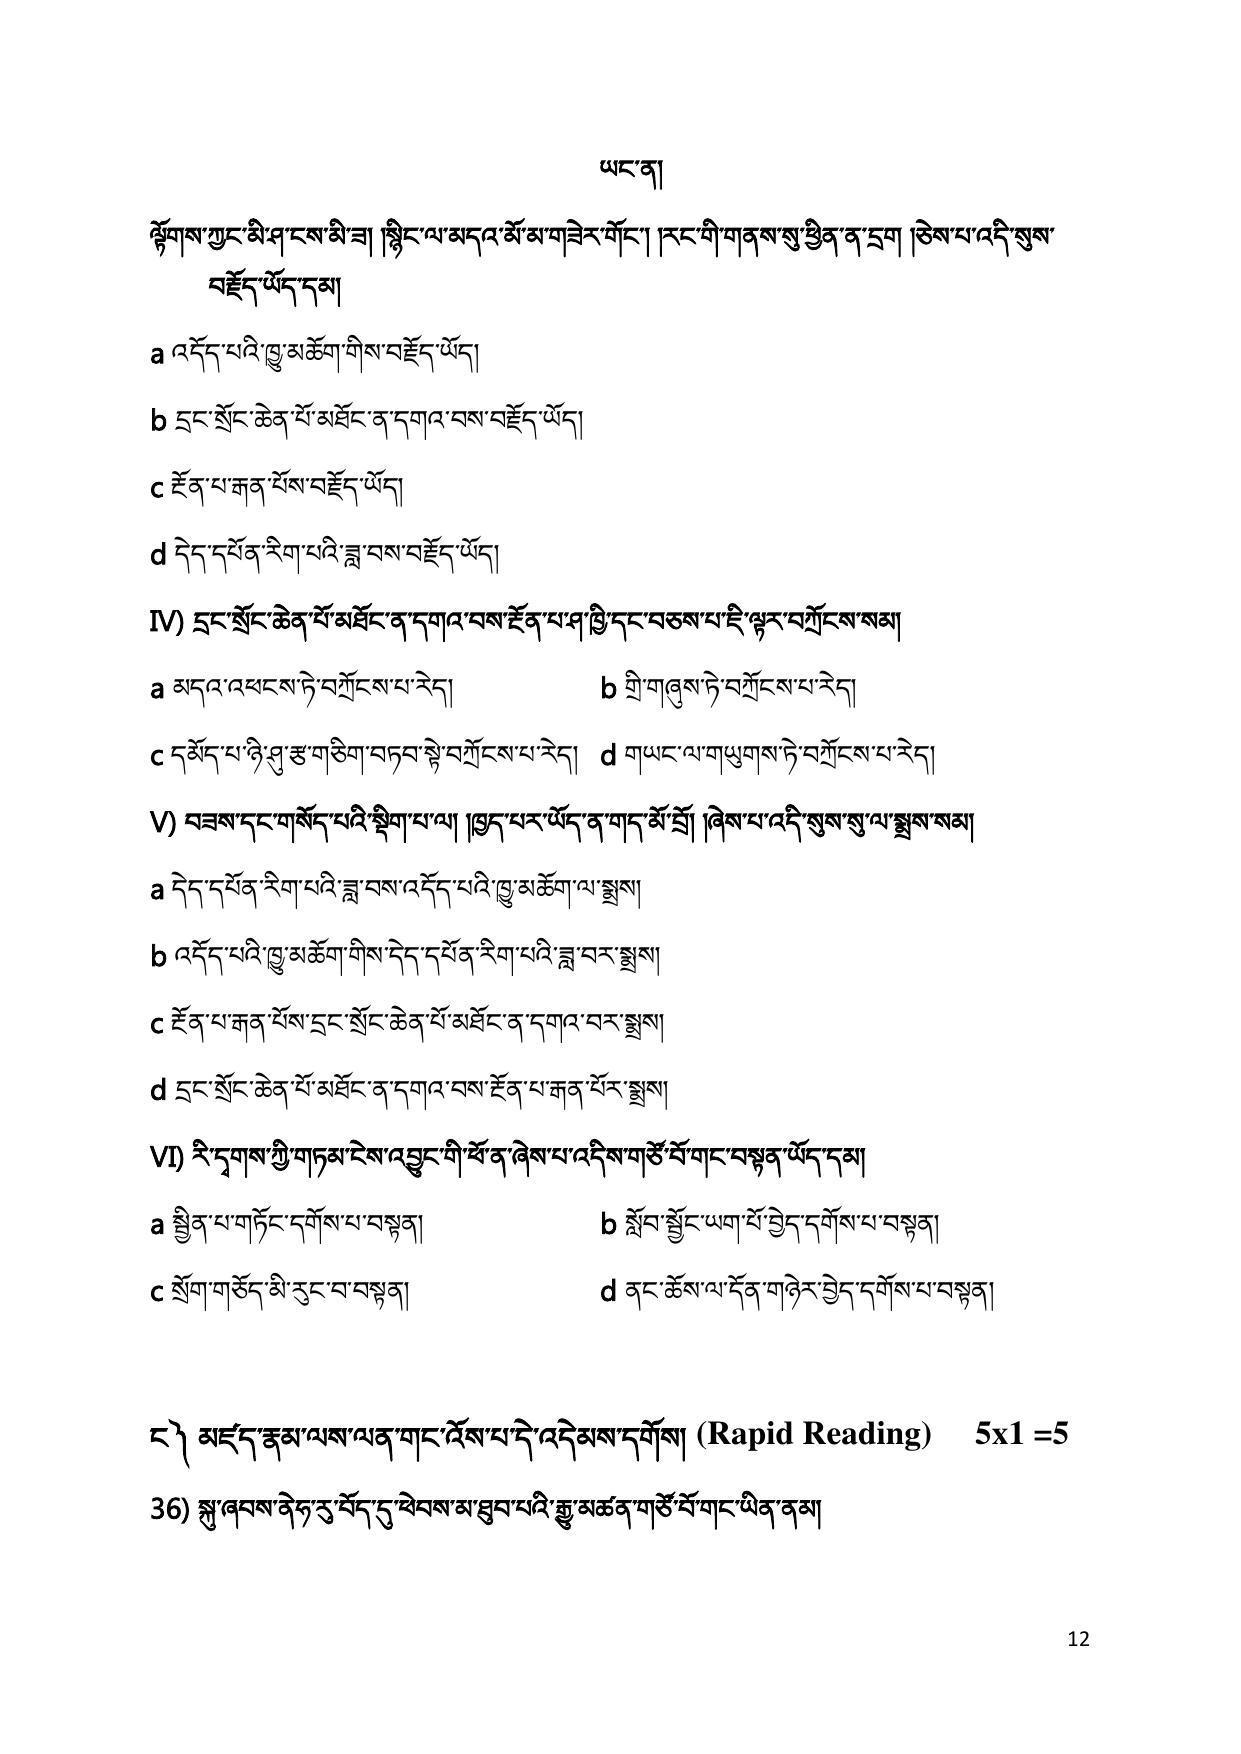 ཡང་ན།
ལྟོགས་ཀྱང་མི་ཤ་ངས་མི་ཟ། །སྙིང་ལ་མདའ་མོ་མ་གཟེར་གོང་། །རང་གི་གནས་སུ་ཕྱིན་ན་དྲག །ཅེས་པ་འདི་སུས་
བརྗོད་ཡོད་དམ།
a འདོད་པའི་ཁྱུ་མཆོག་གིས་བརྗོད་ཡོད།
b དྲང་སྲོང་ཆེན་པོ་མཐོང་ན་དགའ་བས་བརྗོད་ཡོད།
c རྔོན་པ་རྒན་པོས་བརྗོད་ཡོད།
d དེད་དཔོན་རིག་པའི་ཟླ་བས་བརྗོད་ཡོད།
IV) དྲང་སྲོང་ཆེན་པོ་མཐོང་ན་དགའ་བས་རྔོན་པ་ཤ་ཁྱི་དང་བཅས་པ་ཇི་ལྟར་བཀྲོངས་སམ།
a མདའ་འཕངས་ཏེ་བཀྲོངས་པ་རེད། b གྲི་གཞུས་ཏེ་བཀྲོངས་པ་རེད།
c དམོད་པ་ཉི་ཤུ་རྩ་གཅིག་བཏབ་སྟེ་བཀྲོངས་པ་རེད། d གཡང་ལ་གཡུགས་ཏེ་བཀྲོངས་པ་རེད།
V) བཟས་དང་གསོད་པའི་སྡིག་པ་ལ། །ཁྱད་པར་ཡོད་ན་གད་མོ་བྲོ། །ཞེས་པ་འདི་སུས་སུ་ལ་སྨྲས་སམ།
a དེད་དཔོན་རིག་པའི་ཟླ་བས་འདོད་པའི་ཁྱུ་མཆོག་ལ་སྨྲས།
b འདོད་པའི་ཁྱུ་མཆོག་གིས་དེད་དཔོན་རིག་པའི་ཟླ་བར་སྨྲས།
c རྔོན་པ་རྒན་པོས་དྲང་སྲོང་ཆེན་པོ་མཐོང་ན་དགའ་བར་སྨྲས།
d དྲང་སྲོང་ཆེན་པོ་མཐོང་ན་དགའ་བས་རྔོན་པ་རྒན་པོར་སྨྲས།
VI) རི་དྭགས་ཀྱི་གཏམ་ངེས་འབྱུང་གི་ཕོ་ན་ཞེས་པ་འདིས་གཙོ་བོ་གང་བསྟན་ཡོད་དམ།
a སྦྱིན་པ་གཏོང་དགོས་པ་བསྟན། b སློབ་སྦྱོང་ཡག་པོ་བྱེད་དགོས་པ་བསྟན།
c སྲོག་གཅོད་མི་རུང་བ་བསྟན། d ནང་ཆོས་ལ་དོན་གཉེར་བྱེད་དགོས་པ་བསྟན།
ང༽ མཛད་རྣམ་ལས་ལན་གང་འོས་པ་དེ་འདེམས་དགོས། (Rapid Reading) 5x1 =5
36) སྐུ་ཞབས་ནེཧ་རུ་བོད་དུ་ཕེབས་མ་ཐུབ་པའི་རྒྱུ་མཚན་གཙོ་བོ་གང་ཡིན་ནམ།
12